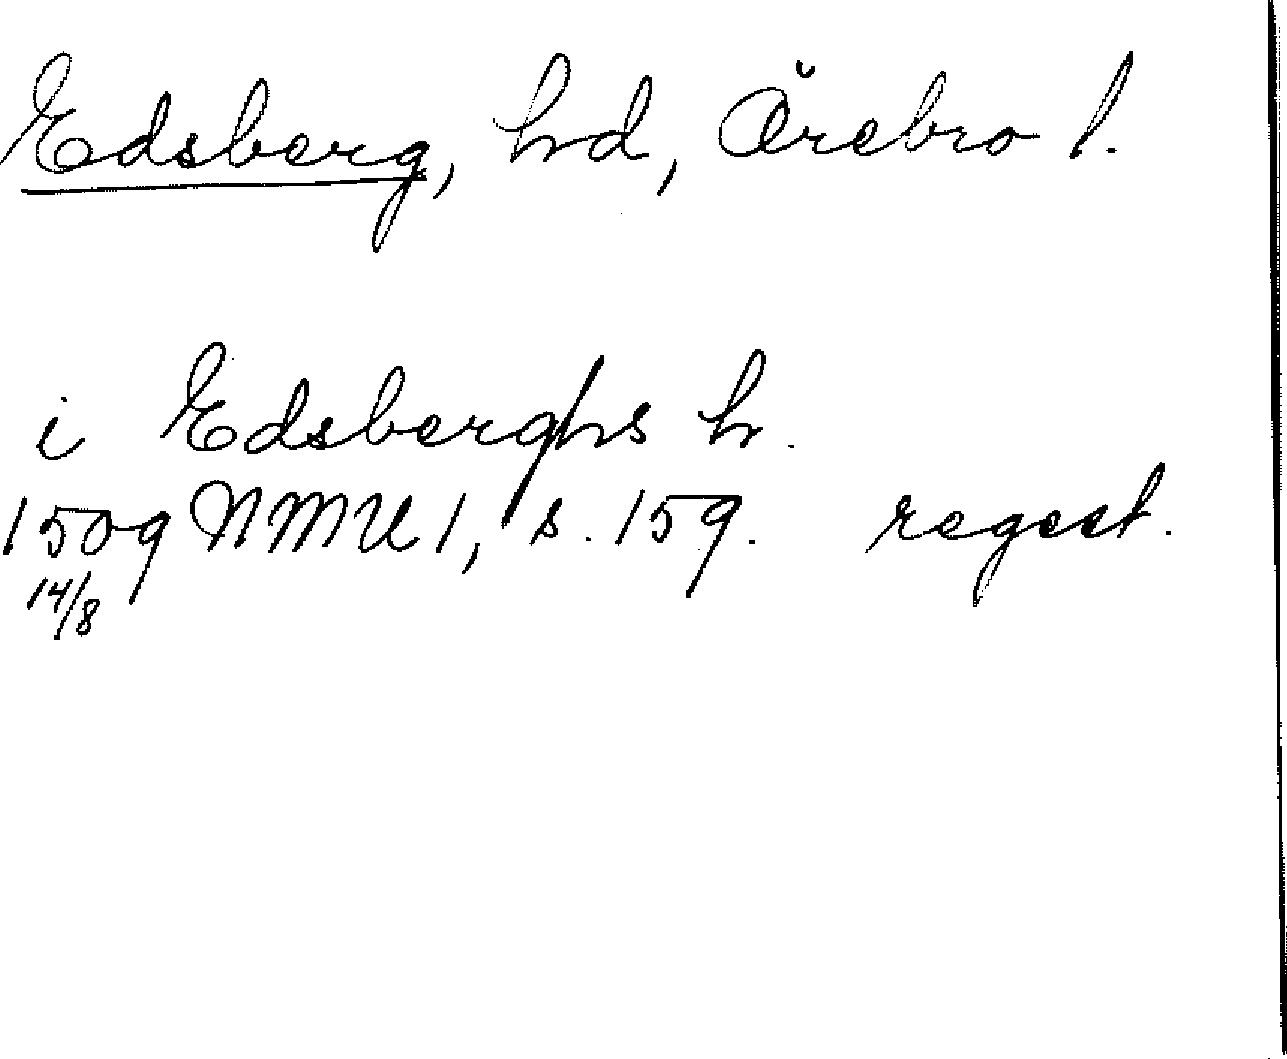 Edsberg, hd, Örebro l.
i Edsberghs h.
1509 NMU 1, s. 159. regest.
14/8